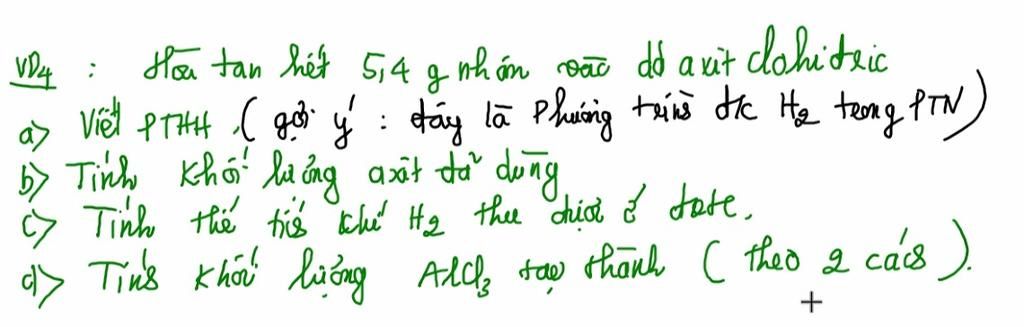 VD4 : Hòa tan hết 5,4 g nhôm vào dd axit clohiđric
a) Viết PTHH. ( gợi ý : đây là phương trình đ/c H2 trong PTN )
b) Tính khối lượng axit đã dùng
c) Tính thể tích khí H2 thu được ở đktc.
d) Tính khối lượng AlCl3 tạo thành ( theo 2 cách ).